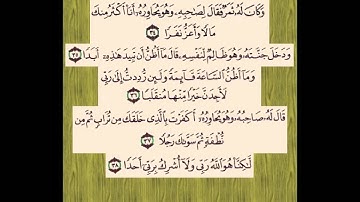 وَكَانَ لَهُۥ ثَمَرٌ فَقَالَ لِصَٰحِبِهِۦ وَهُوَ يُحَاوِرُهُۥٓ أَنَا۠ أَكْثَرُ مِنكَ
مَالًا وَأَعَزُّ نَفَرًا ٣٤
وَدَخَلَ جَنَّتَهُۥ وَهُوَ ظَالِمٌ لِّنَفْسِهِۦ قَالَ مَآ أَظُنُّ أَن تَبِيدَ هَٰذِهِۦٓ أَبَدًا ٣٥
وَمَآ أَظُنُّ ٱلسَّاعَةَ قَآئِمَةً وَلَئِن رُّدِدتُّ إِلَىٰ رَبِّى
لَأَجِدَنَّ خَيْرًا مِّنْهَا مُنقَلَبًا ٣٦
قَالَ لَهُۥ صَاحِبُهُۥ وَهُوَ يُحَاوِرُهُۥٓ أَكَفَرْتَ بِٱلَّذِى خَلَقَكَ مِن تُرَابٍ ثُمَّ مِن
نُّطْفَةٍ ثُمَّ سَوَّىٰكَ رَجُلًا ٣٧
لَّٰكِنَّا۠ هُوَ ٱللَّهُ رَبِّى وَلَآ أُشْرِكُ بِرَبِّىٓ أَحَدًا ٣٨